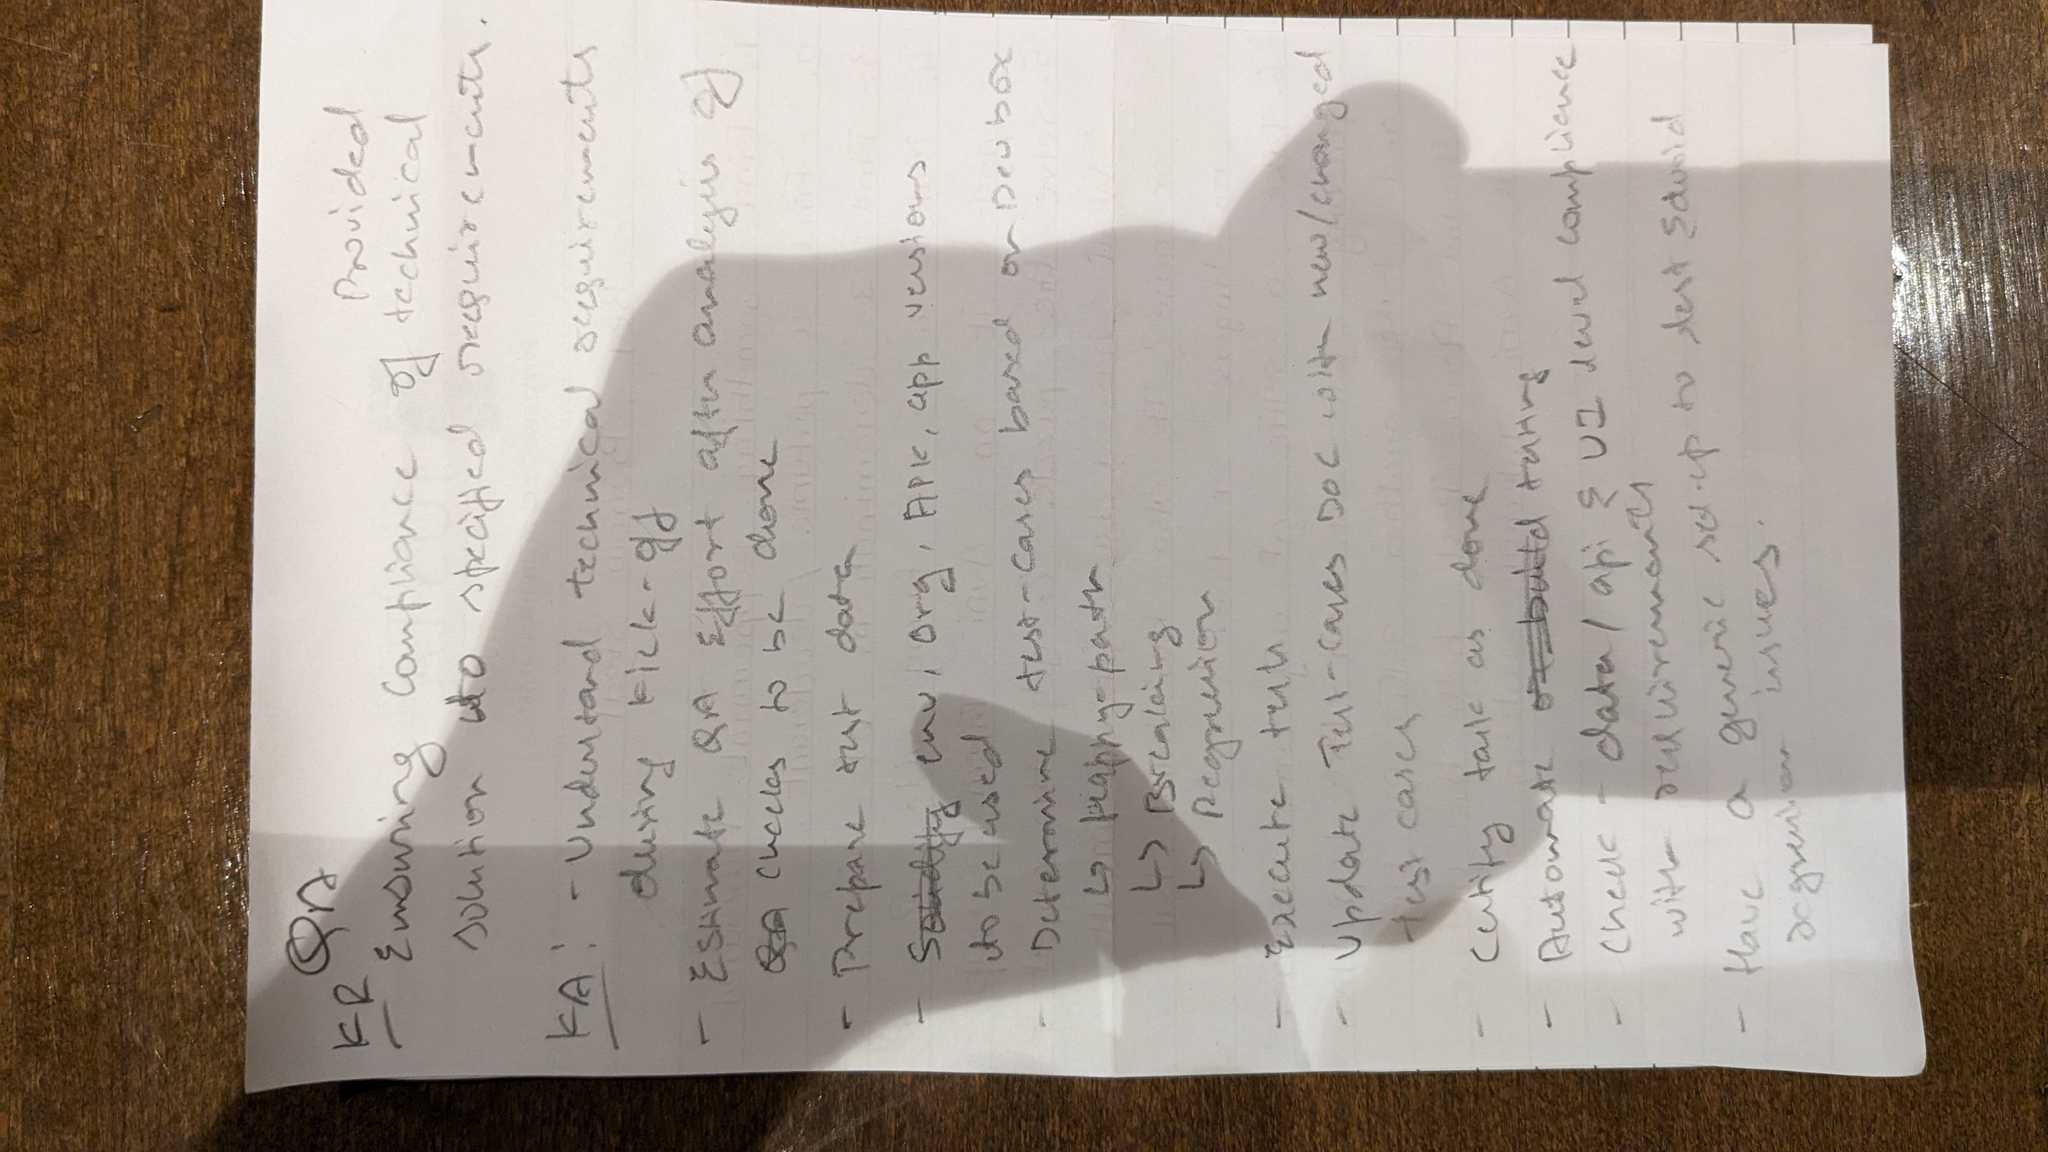 QA
KR Provided
Ensuring compliance of technical
solution to specified requirements.
KA: - Understand technical requirements
during kick-off
- Estimate QA Effort after analysis of
cycles to be done
- Prepare test data
- env, org, APK, app versions
to be used
- Determine test-cases based on Devbox
↳ Happy-path
↳ Breaking
↳ Regression
- Execute tests
- Update Test-cases Doc with new/changed
test cases
- Certify task as done
- Automate testing
- Check - data/api & UI level complience
with requirements
- Have a generic set-up to test & avoid
regression issues.